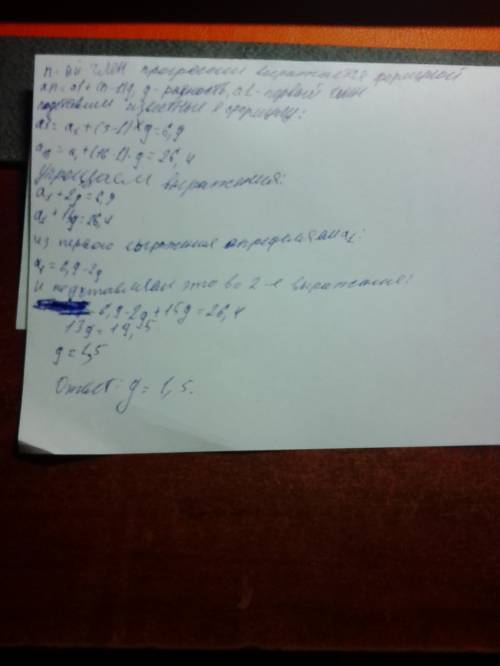 n-ый член прогрессии выражается формулой
an=a1+(n-1)g, g-разность, a1-первый член
подставим известные в формулу:
a3=a1+(3-1)*g=6,9
a16=a1+(16-1)·g=26,4
Упрощаем выражения:
a1+2g=6,9
a1+15g=26,4
из первого выражения определяем a1:
a1=6,9-2g
и подставляем это во 2-е выражение:
6,9-2g+15g=26,4
13g=19,5
g=1,5
Ответ: g=1,5.